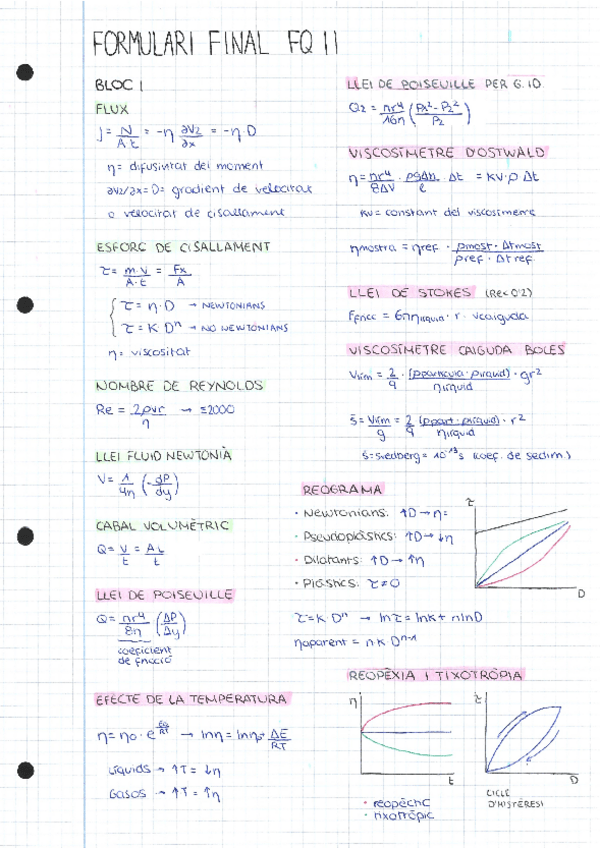 FORMULARI FINAL FQ II
BLOC I
FLUX
J = N/A·t = -η ∂Vz/∂x = -η·D
η = difusivitat del moment
∂Vz/∂x = D = gradient de velocitat
o velocitat de cisallament
ESFORÇ DE CISALLAMENT
τ = m·v/A·t = Fx/A
τ = η·D → NEWTONIANS
τ = K·Dⁿ → NO NEWTONIANS
η = viscositat
NOMBRE DE REYNOLDS
Re = 2ρvr/η → ≈2000
LLEI FLUID NEWTONIÀ
V = 1/4η (-dP/dy)
CABAL VOLUMÈTRIC
Q = V/t = A·L/t
LLEI DE POISEUILLE
Q = πr⁴/8η (ΔP/Δy)
coeficient
de fricció
EFECTE DE LA TEMPERATURA
η = η0 · e^Ea/RT → lnη = lnη0 + ΔE/RT
Líquids → ↑T = ↓η
Gasos → ↑T = ↑η
LLEI DE POISEUILLE PER G.ID.
Q2 = πr⁴/16η (P1² - P2²/P2)
VISCOSÍMETRE D'OSTWALD
η = πr⁴/8ΔV · ρgΔh/l · Δt = KV·ρ·Δt
KV = constant del viscosímetre
ηmostra = ηref · ρmost·Δtmost/ρref·Δtref
LLEI DE STOKES (Re<0'2)
Ffricc = 6πηlíquid · r · Vcaiguda
VISCOSÍMETRE CAIGUDA BOLES
Vlim = 2/9 · (ρpartícula - ρlíquid)/ηlíquid · gr²
s̄ = Vlim/g = 2/9 (ρpart - ρlíquid)/ηlíquid · r²
s̄ = svedberg = 10⁻¹³ s (coef. de sedim.)
REOGRAMA
· Newtonians: ↑D → η=
· Pseudoplàstics: ↑D → ↓η
· Dilatants: ↑D → ↑η
· Plàstics: τ≠0
τ
D
τ = K·Dⁿ → lnτ = lnK + nlnD
ηaparent = nKDⁿ⁻¹
REOPÈXIA I TIXOTRÒPIA
η
t
τ
D
· reopèctic
· tixotròpic
CICLE
D'HISTÈRESI